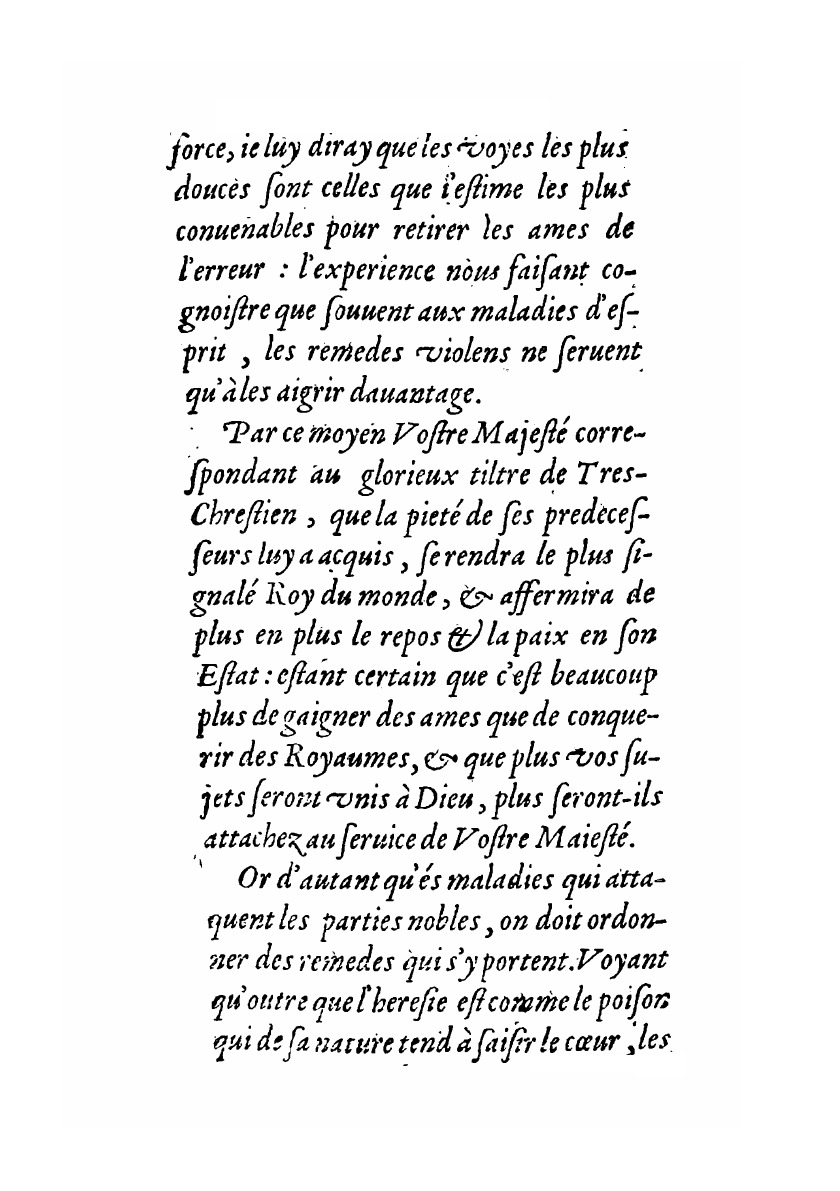 ſorce, ie luy diray que les voyes les plus
douces ſont celles que i'eſtime les plus
conuenables pour retirer les ames de
l'erreur : l'experience nous faiſant co-
gnoiſtre que ſouuent aux maladies d'eſ-
prit , les remedes violens ne ſeruent
qu'à les aigrir dauantage.
Par ce moyen Voſtre Majeſté corre-
ſpondant au glorieux tiltre de Tres-
Chreſtien , que la pieté de ſes predeceſ-
ſeurs luy a acquis , ſe rendra le plus ſi-
gnalé Roy du monde , & affermira de
plus en plus le repos & la paix en ſon
Eſtat : eſtant certain que c'eſt beaucoup
plus de gaigner des ames que de conque-
rir des Royaumes, & que plus vos ſu-
jets ſeront vnis à Dieu , plus ſeront-ils
attachez au ſeruice de Voſtre Maieſté.
Or d'autant qu'és maladies qui atta-
quent les parties nobles , on doit ordon-
ner des remedes qui s'y portent. Voyant
qu'outre que l'hereſie eſt comme le poiſon
qui de ſa nature tend à ſaiſir le cœur , les